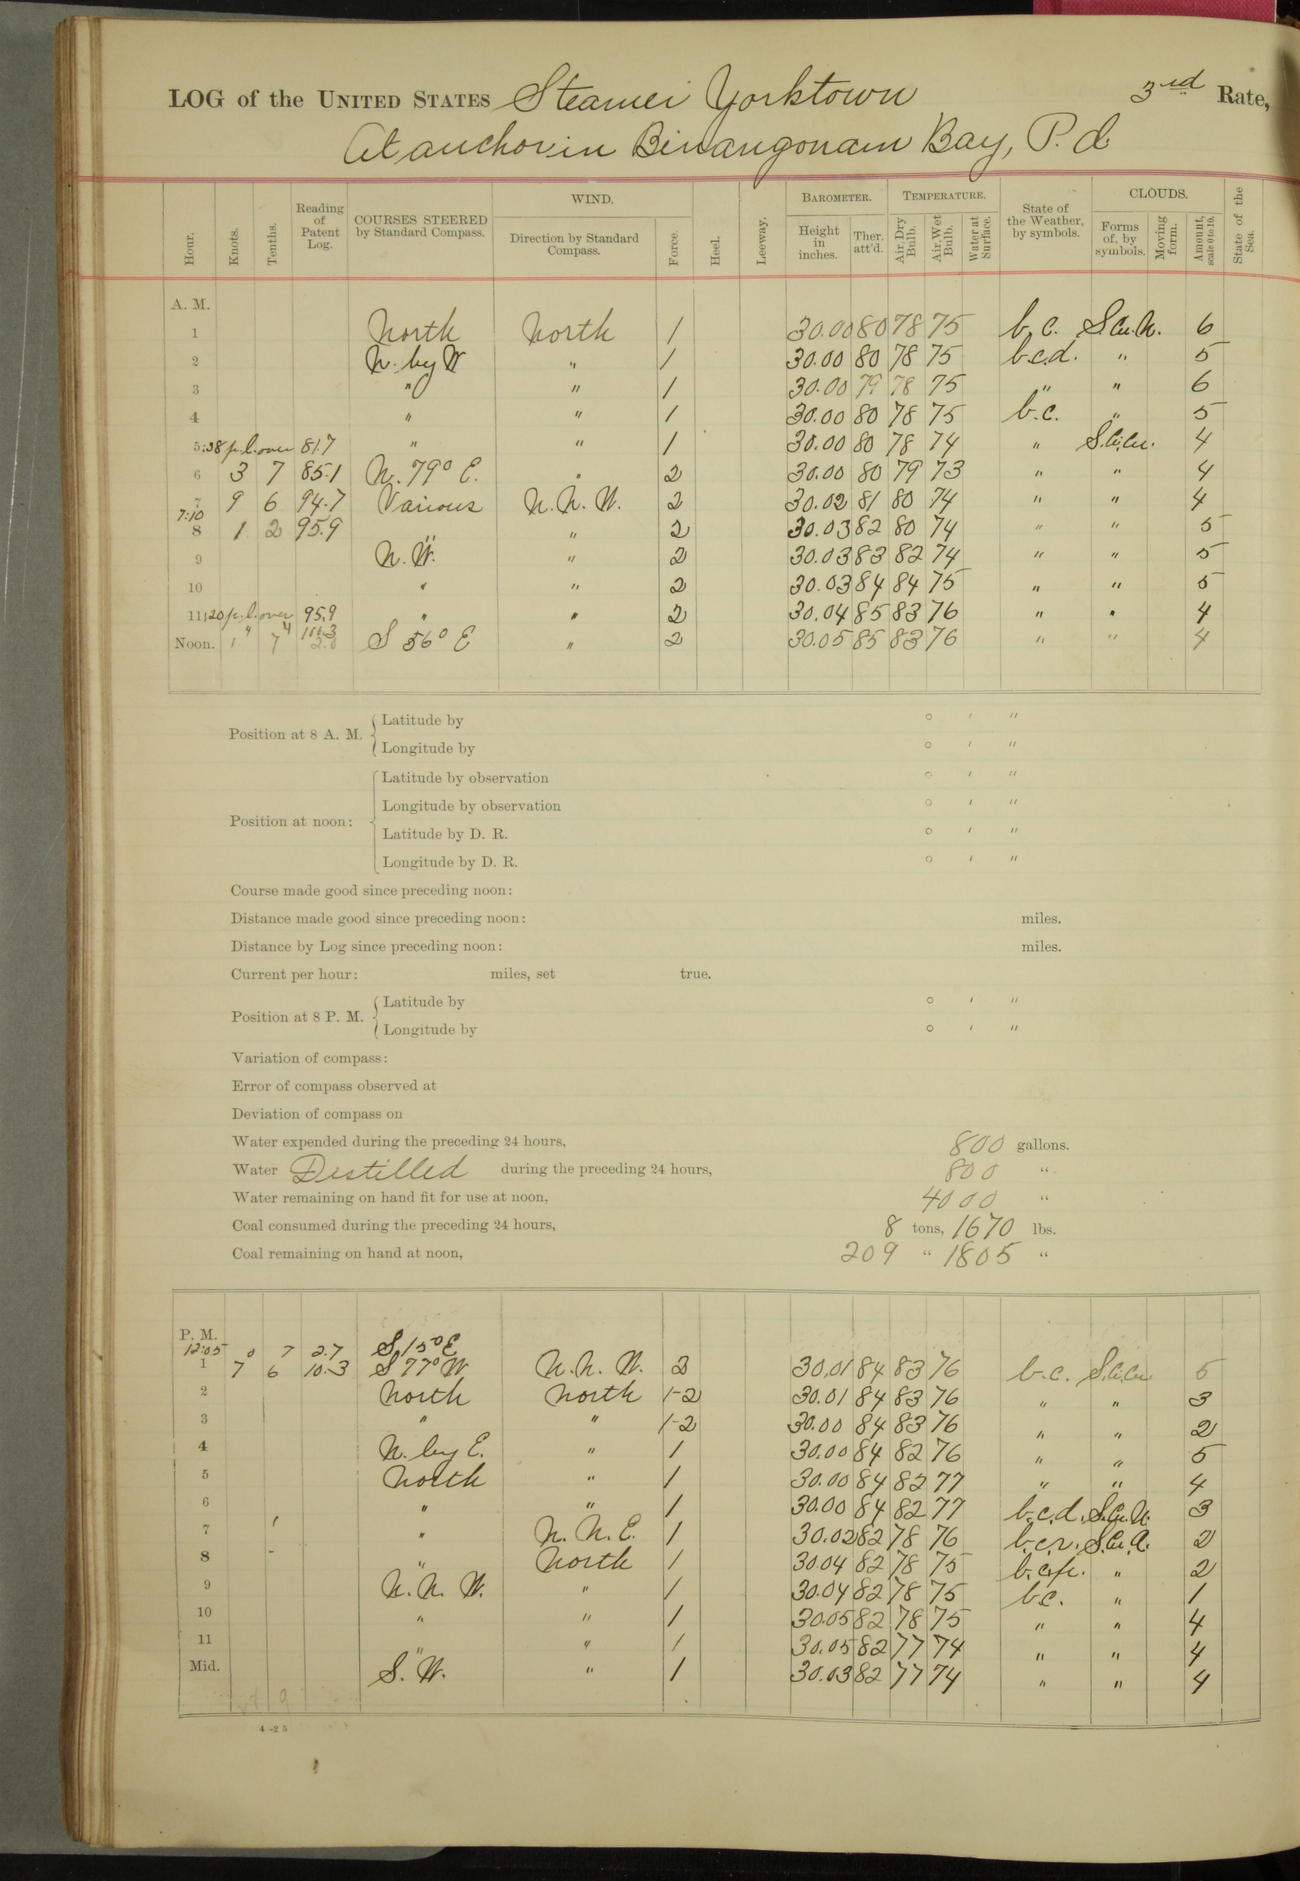 LOG of the UNITED STATES Steamer Yorktown 3rd Rate,
At anchor in Binangonam Bay, P. I.
Hour. Knots. Tenths. Reading of Patent Log. COURSES STEERED by Standard Compass. WIND. Direction by Standard Compass. Force. Heel. Leeway. BAROMETER. Height in inches. Ther. att'd. TEMPERATURE. Air, Dry Bulb. Air, Wet Bulb. Water at Surface. State of the Weather, by symbols. CLOUDS. Forms of, by symbols. Moving form. Amount, scale 0 to 10. State of the Sea.
A. M.
1 North North 1 30.00 80 78 75 b.c. S.Cu.N. 6
2 N. by W " 1 30.00 80 78 75 b.c.d. " 5
3 " " 1 30.00 79 78 75 " " 6
4 " " 1 30.00 80 78 75 b.c. " 5
5:38 p.l. over 81.7 " " 1 30.00 80 78 74 " S.Ci.Cu. 4
6 3 7 85.1 N. 79° E. " 2 30.00 80 79 73 " " 4
7 9 6 94.7 Various N.N.W. 2 30.02 81 80 74 " " 4
7:10
8 1 2 95.9 " " 2 30.03 82 80 74 " " 5
9 N.W. " 2 30.03 83 82 74 " " 5
10 " " 2 30.03 84 84 75 " " 5
11:20 p.l. over 95.9 " " 2 30.04 85 83 76 " " 4
Noon. S 56° E " 2 30.05 85 83 76 " " 4
Position at 8 A. M. Latitude by ° ′ ″
Longitude by ° ′ ″
Latitude by observation ° ′ ″
Longitude by observation ° ′ ″
Position at noon:
Latitude by D. R. ° ′ ″
Longitude by D. R. ° ′ ″
Course made good since preceding noon:
Distance made good since preceding noon: miles.
Distance by Log since preceding noon: miles.
Current per hour: miles, set true.
Position at 8 P. M. Latitude by ° ′ ″
Longitude by ° ′ ″
Variation of compass:
Error of compass observed at
Deviation of compass on
Water expended during the preceding 24 hours, 800 gallons.
Water Distilled during the preceding 24 hours, 800 "
Water remaining on hand fit for use at noon, 4000 "
Coal consumed during the preceding 24 hours, 8 tons, 1670 lbs.
Coal remaining on hand at noon, 209 " 1805 "
P. M.
12:05 0 7 2.7 S 15° E
1 7 6 10.3 S 77° W N.N.W. 2 30.01 84 83 76 b.c. S.Ci.Cu. 5
2 North North 1-2 30.01 84 83 76 " " 3
3 " " 1-2 30.00 84 83 76 " " 2
4 N. by E. " 1 30.00 84 82 76 " " 5
5 North " 1 30.00 84 82 77 " " 4
6 " " 1 30.00 84 82 77 b.c.d. S.Cu.N. 3
7 " N.N.E. 1 30.02 82 78 76 b.c.r. 2
8 " North 1 30.04 82 78 75 " 2
9 N.N.W. " 1 30.04 82 78 75 b.c. " 1
10 " " 1 30.05 82 78 75 " " 4
11 " " 1 30.05 82 77 74 " " 4
Mid. S.W. " 1 30.03 82 77 74 " " 4
4-25